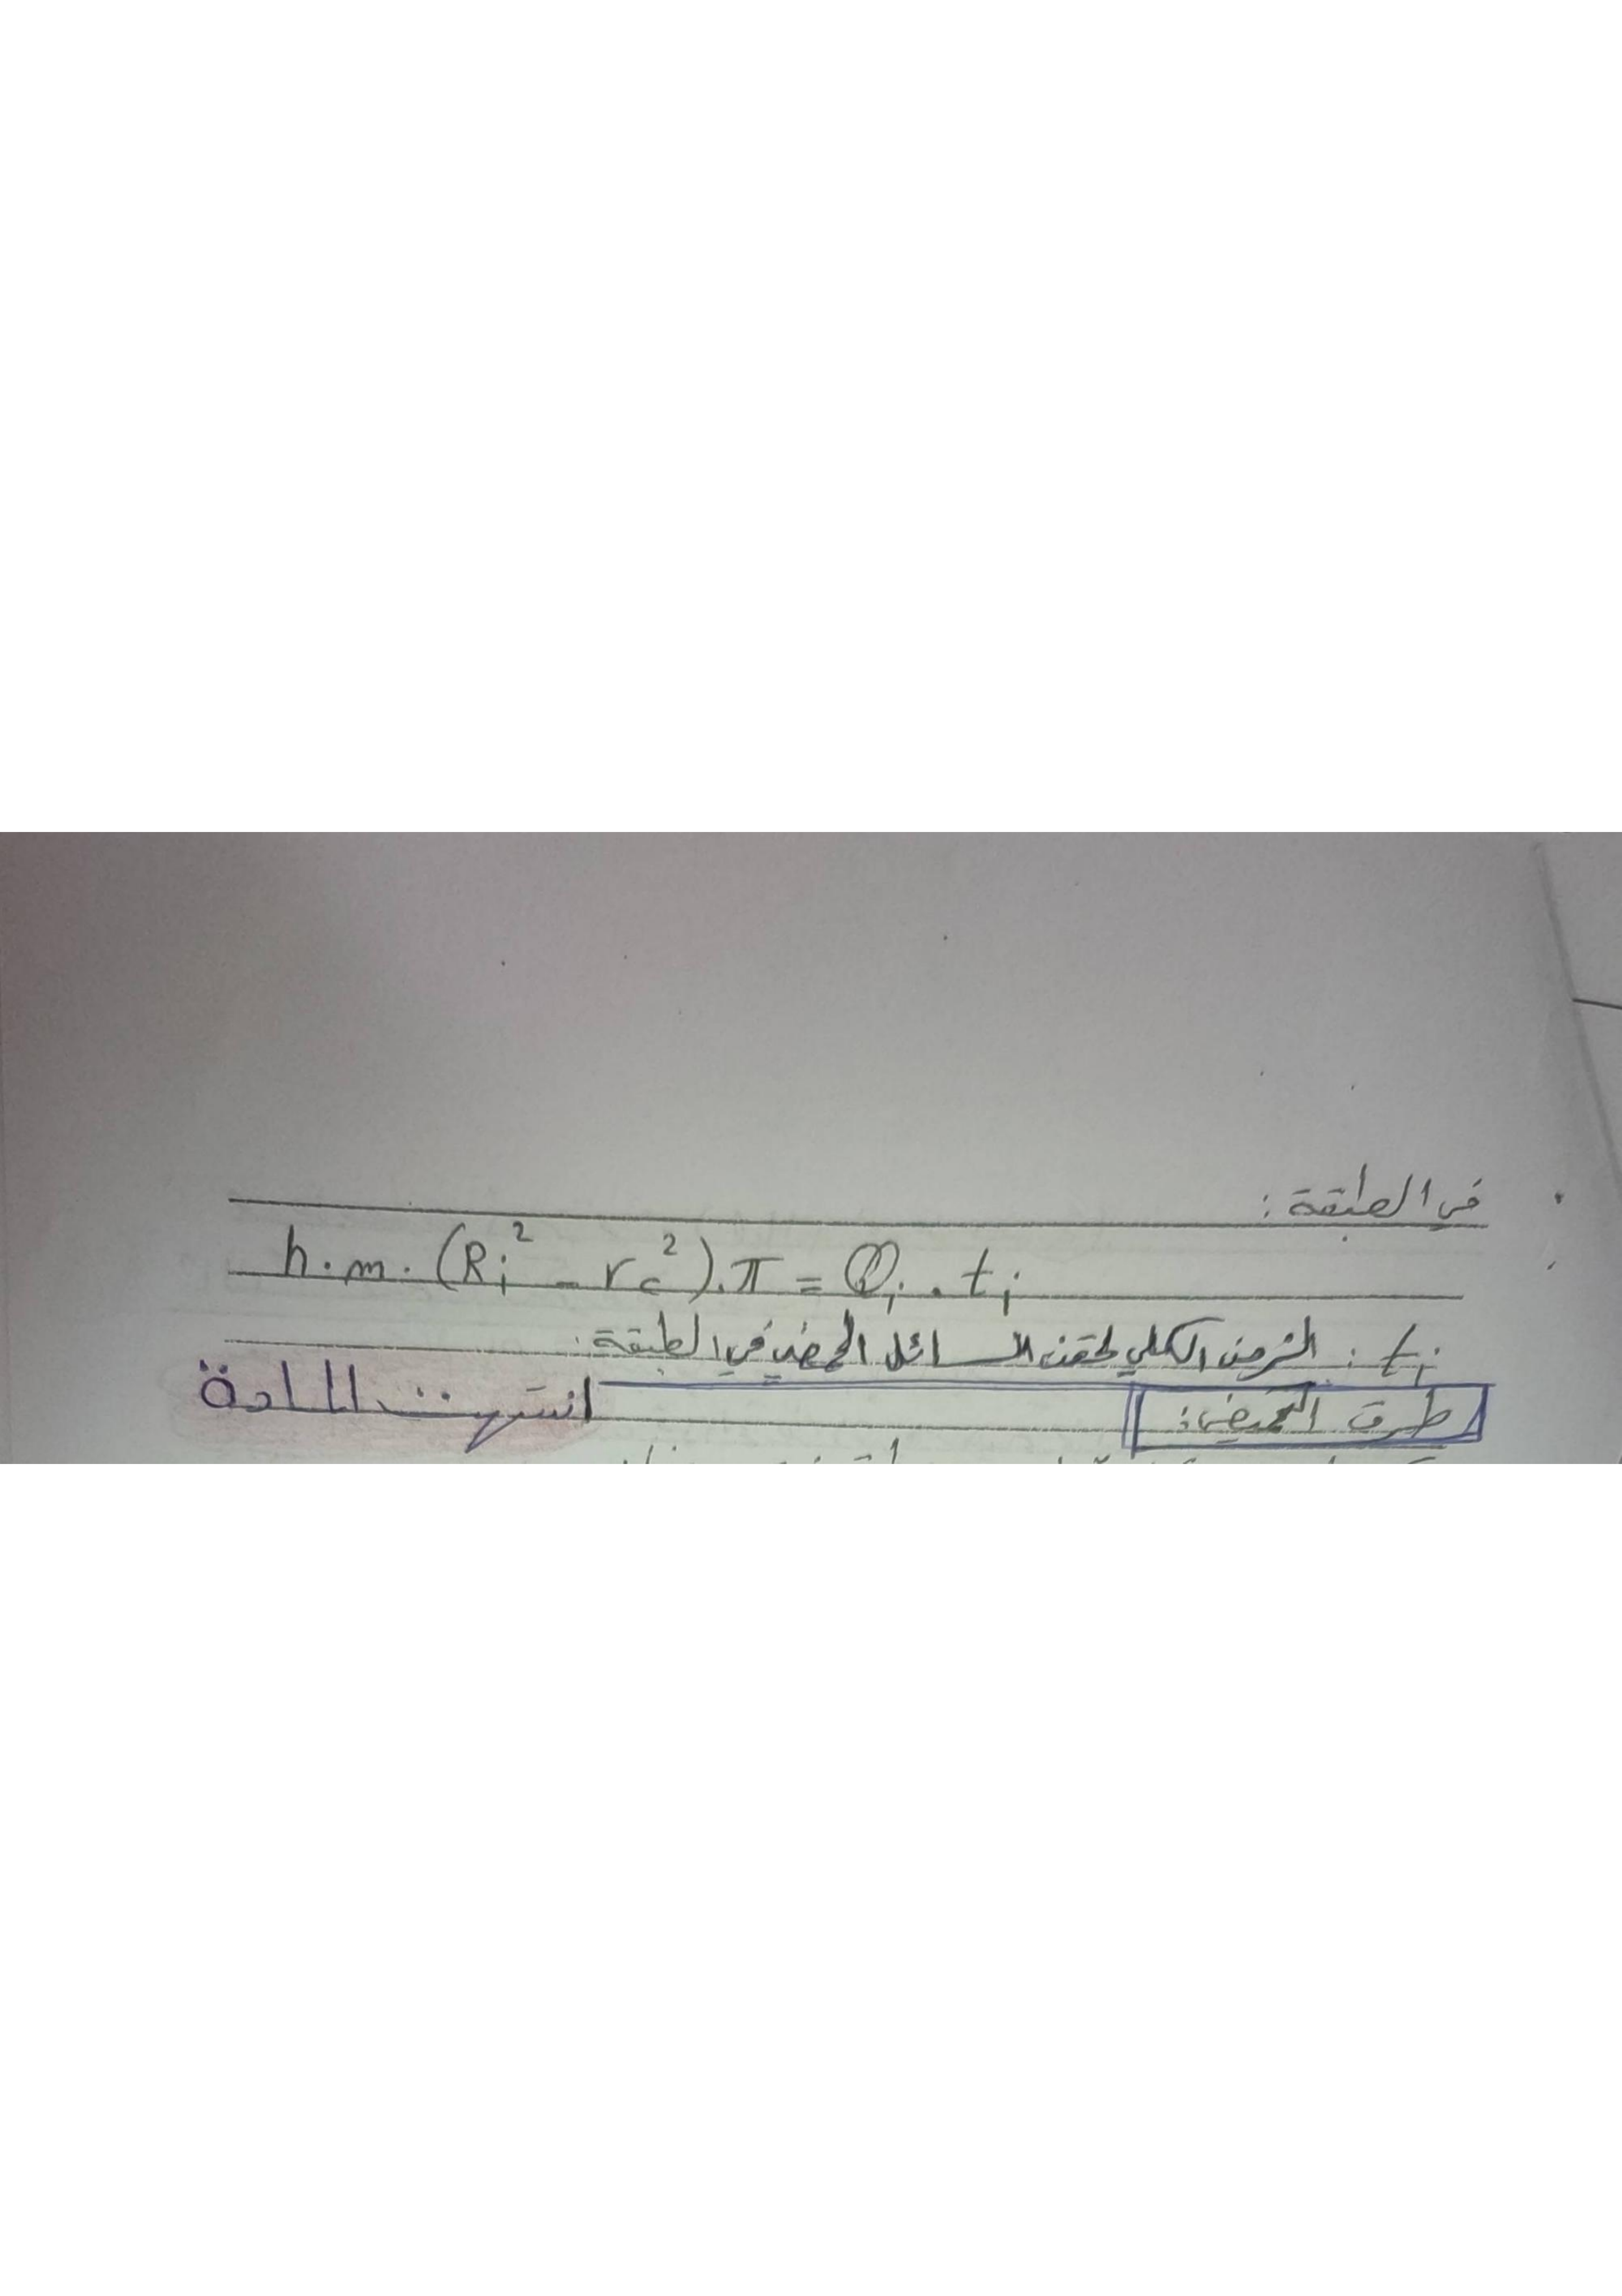 في الطبقة :
h . m . (Ri² - rc²) . π = Qi . ti
ti : الزمن الكلي لحقن السائل الحمضي في الطبقة :
طرق التحميض :
انتهت المادة